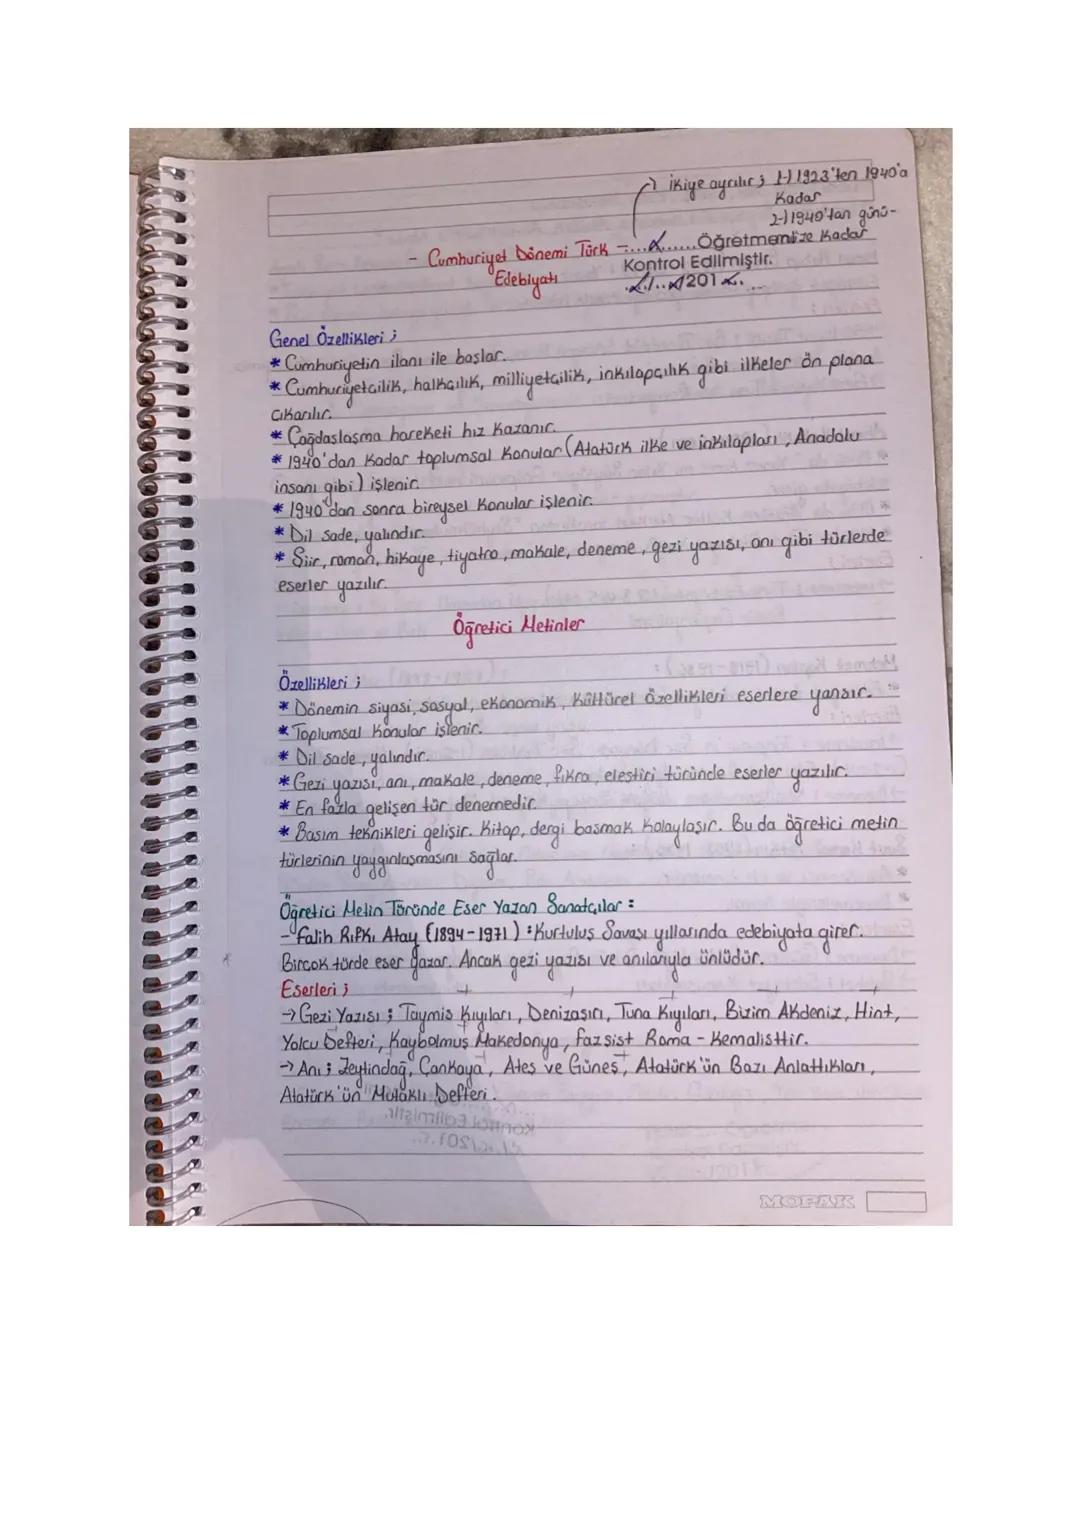 ikiye ayrılır; 1-) 1923'ten 1940'a
Kadar
2-) 1940'tan günü-
müze Kadar
- Cumhuriyet Dönemi Türk -
Edebiyatı
Öğretmen
Kontrol Edilmiştir.
/201
Genel Özellikleri ;
* Cumhuriyetin ilanı ile başlar.
* Cumhuriyetçilik, halkçılık, milliyetçilik, inkılapçılık gibi ilkeler ön plana
çıkarılır.
* Çağdaşlaşma hareketi hız kazanır.
* 1940'dan Kadar toplumsal Konular (Atatürk ilke ve inkılapları, Anadolu
insanı gibi) işlenir.
* 1940'dan sonra bireysel Konular işlenir.
* Dil sade, yalındır.
* Şiir, roman, hikaye, tiyatro, makale, deneme, gezi yazısı, anı gibi türlerde
eserler yazılır.
Öğretici Metinler
Özellikleri ;
* Dönemin siyasi, sosyal, ekonomik, Kültürel özellikleri eserlere yansır.
* Toplumsal Konular işlenir.
* Dil sade, yalındır.
* Gezi yazısı, anı, makale, deneme, fıkra, eleştiri türünde eserler yazılır.
* En fazla gelişen tür denemedir.
* Basım teknikleri gelişir. Kitap, dergi basmak Kolaylaşır. Bu da öğretici metin
türlerinin yaygınlaşmasını sağlar.
Öğretici Metin Türünde Eser Yazan Sanatçılar :
- Falih Rıfkı Atay (1894-1971) : Kurtuluş Savaşı yıllarında edebiyata girer.
Birçok türde eser yazar. Ancak gezi yazısı ve anılarıyla ünlüdür.
Eserleri ;
→ Gezi Yazısı ; Taymis Kıyıları, Denizaşırı, Tuna Kıyıları, Bizim Akdeniz, Hint,
Yolcu Defteri, Kaybolmuş Makedonya, Fazsist Roma - Kemalisttir.
→ Anı ; Zeytindağ, Çankaya, Ateş ve Güneş, Atatürk'ün Bazı Anlattıkları,
Atatürk'ün Mutaklı Defteri.
MOPAK